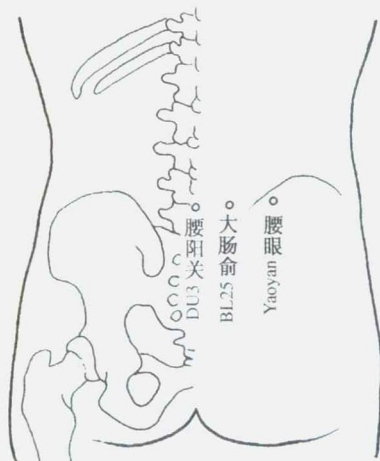 腰阳关
DU3
大肠俞
BL25
腰眼
Yaoyan